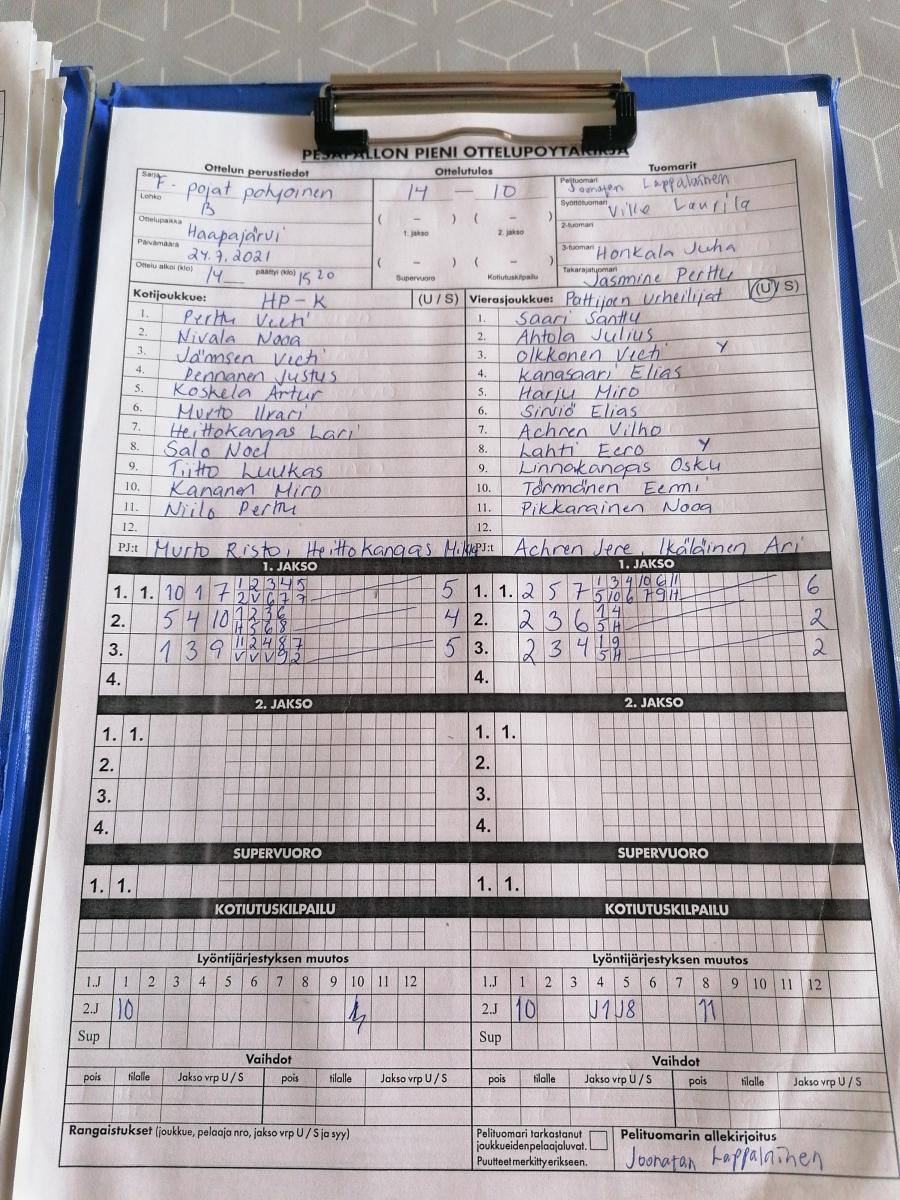 PESÄPALLON PIENI OTTELUPÖYTÄKIRJA
Ottelun perustiedot Ottelutulos Tuomarit
Sarja F-pojat pohjoinen
Lohko B
Ottelupaikka Haapajärvi
Päivämäärä 24.7.2021
Ottelu alkoi (klo) 14 päättyi (klo) 15 20
14 – 10
( – ) ( – )
1. jakso 2. jakso
( – ) ( – )
Supervuoro Kotiutuskilpailu
Pelituomari Joonatan Lappalainen
Syöttötuomari Ville Laurila
2-tuomari
3-tuomari Honkala Juha
Takarajatuomari Jasmine Perttu
Kotijoukkue: HP-K (U / S)
1. Perttu Veeti
2. Nivala Nooa
3. Jämsen Veeti
4. Pennanen Justus
5. Koskela Artur
6. Murto Iirari
7. Heittokangas Lari
8. Salo Noel
9. Tiitto Luukas
10. Kananen Miro
11. Niilo Perttu
12.
PJ:t Murto Risto, Heittokangas Mikko
Vierasjoukkue: Pattijoen Urheilijat (U / S)
1. Saari Santtu
2. Ahtola Julius
3. Olkkonen Veeti Y
4. Kanasaari Elias
5. Harju Miro
6. Sirviö Elias
7. Achren Vilho
8. Lahti Eero Y
9. Linnakangas Osku
10. Törmänen Eemi
11. Pikkarainen Nooa
12.
PJ:t Achren Jere, Ikäläinen Ari
1. JAKSO 1. JAKSO
1. 1. 10 1 7 1 2 3 4 5 5
2 V 6 7 7
2. 5 4 10 1 2 3 6 4
H 5 6 8
3. 1 3 9 11 2 4 8 7 5
V V V 9 2
4.
1. 1. 2 5 7 1 3 4 10 6 11 6
5 10 6 7 9 H
2. 2 3 6 1 4 2
5 H
3. 2 3 4 1 9 2
5 H
4.
2. JAKSO 2. JAKSO
1. 1. 1. 1.
2. 2.
3. 3.
4. 4.
SUPERVUORO SUPERVUORO
1. 1. 1. 1.
KOTIUTUSKILPAILU KOTIUTUSKILPAILU
Lyöntijärjestyksen muutos Lyöntijärjestyksen muutos
1.J 1 2 3 4 5 6 7 8 9 10 11 12 1.J 1 2 3 4 5 6 7 8 9 10 11 12
2.J 10 2.J 10 J1 J8 11
Sup Sup
Vaihdot Vaihdot
pois tilalle Jakso vrp U / S pois tilalle Jakso vrp U / S pois tilalle Jakso vrp U / S pois tilalle Jakso vrp U / S
Rangaistukset (joukkue, pelaaja nro, jakso vrp U / S ja syy)
Pelituomari tarkastanut
joukkueiden pelaajaluvat.
Puutteet merkitty erikseen.
Pelituomarin allekirjoitus
Joonatan Lappalainen